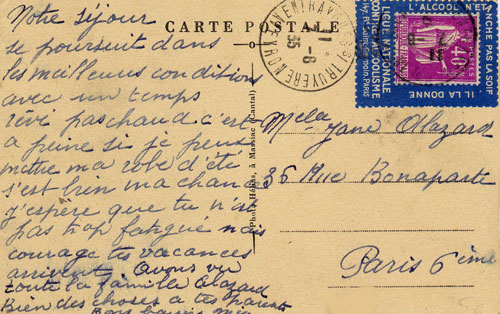 CARTE POSTALE
Notre séjour
se poursuit dans
les meilleures condition
avec un temps
rêvé pas chaud c'est
a peine si je peux
mettre ma robe d'été
s'est bien ma chance
j'espère que tu n'est
pas trop fatigué mais
courage tes vacances
arrivent. Avons vu
toute la famille Alazard
Bien des choses a tes parents
Bons baisers
Photo Hélias, à Massiac (Cantal)
TRUYERE
11-6
35
L'ALCOOL NE
ÉTANCHE PAS LA SOIF
IL LA DONNE
LIGUE NATIONALE
CONTRE L'ALCOOLISME
40
Melle Jane Alazard
36 Rue Bonaparte
Paris 6ème